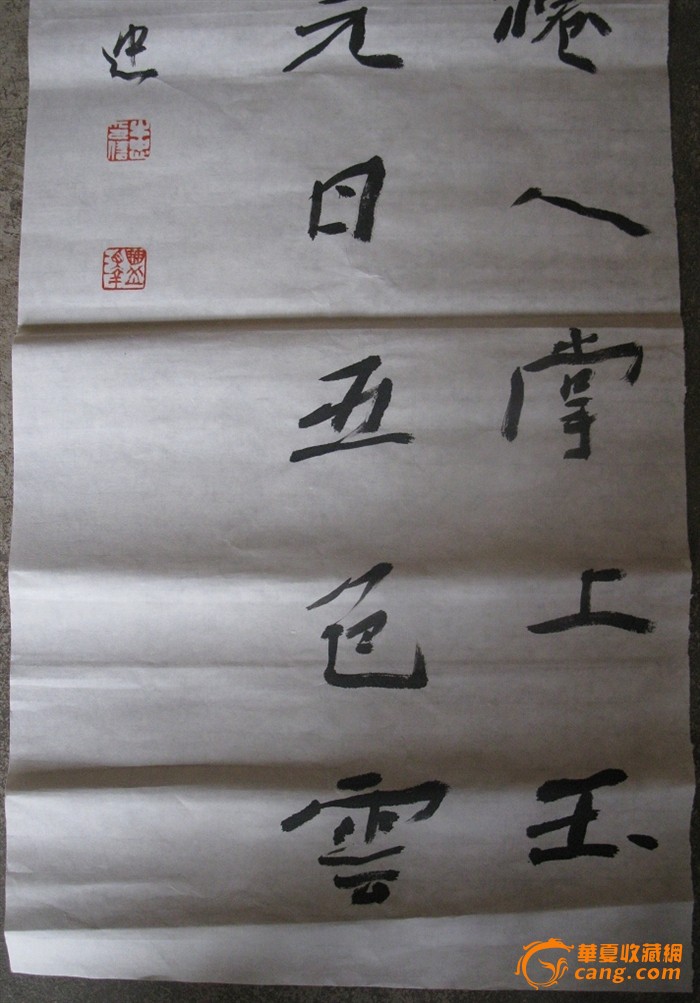 人掌上玉
元日五色雲
忠
華夏收藏網
cang.com